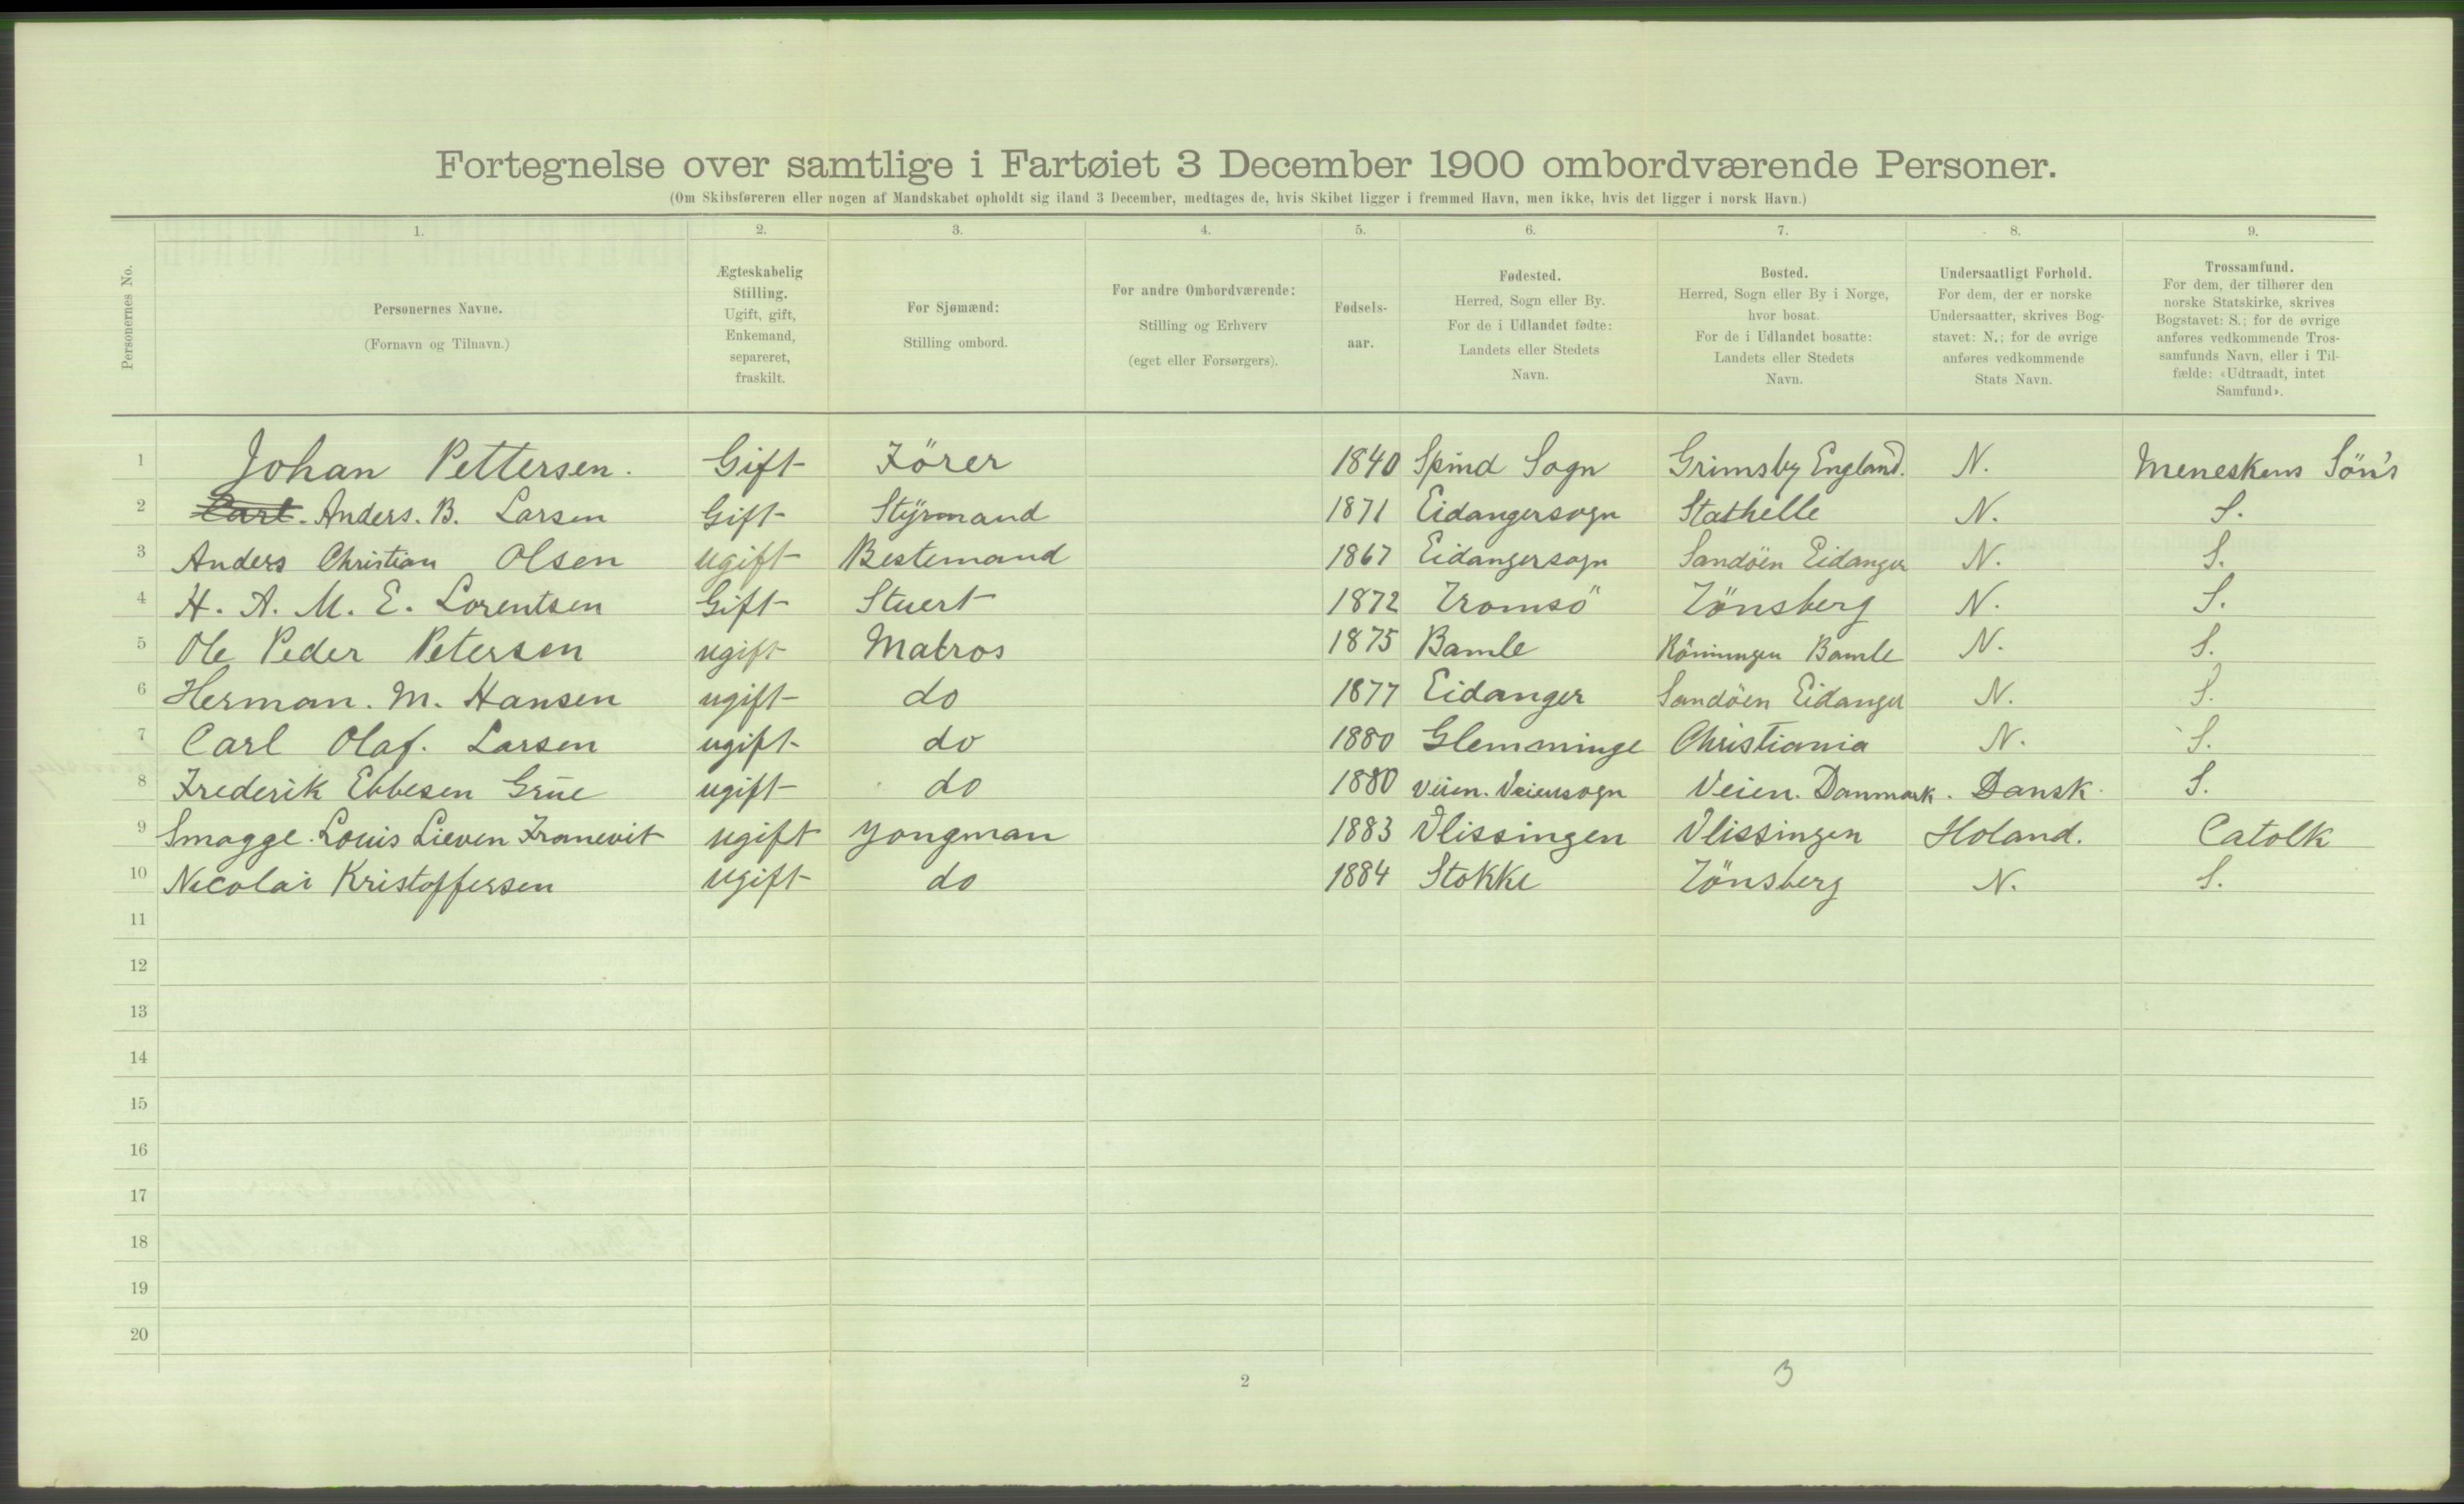 Fortegnelse over samtlige i Fartøiet 3 December 1900 ombordværende Personer.
(Om Skibsføreren eller nogen af Mandskabet opholdt sig iland 3 December, medtages de, hvis Skibet ligger i fremmed Havn, men ikke, hvis det ligger i norsk Havn.)
1. 2. 3. 4. 5. 6. 7. 8. 9.
Personernes No.
Personernes Navne.
(Fornavn og Tilnavn.)
Ægteskabelig
Stilling.
Ugift, gift,
Enkemand,
separeret,
fraskilt.
For Sjømænd:
Stilling ombord.
For andre Ombordværende:
Stilling og Erhverv
(eget eller Forsørgers).
Fødsels-
aar.
Fødested.
Herred, Sogn eller By.
For de i Udlandet fødte:
Landets eller Stedets
Navn.
Bosted.
Herred, Sogn eller By i Norge,
hvor bosat.
For de i Udlandet bosatte:
Landets eller Stedets
Navn.
Undersaatligt Forhold.
For dem, der er norske
Undersaatter, skrives Bog-
stavet: N.; for de øvrige
anføres vedkommende
Stats Navn.
Trossamfund.
For dem, der tilhører den
norske Statskirke, skrives
Bogstavet: S.; for de øvrige
anføres vedkommende Tros-
samfunds Navn, eller i Til-
fælde: «Udtraadt, intet
Samfund».
1 Johan Pettersen. Gift Förer 1840 Spind Sogn Grimsby England. N. Meneskens Sön's
2 Carl. Anders. B. Larsen Gift Styrmand 1871 Eidangersogn Stathelle N. S.
3 Anders Christian Olsen ugift Bestemand 1867 Eidangersogn Sandöen Eidanger N. S.
4 H. A. M. E. Lorentsen Gift Stuert 1872 Tromsö Tönsberg N. S.
5 Ole Peder Petersen ugift Matros 1875 Bamle Röningen Bamle N. S.
6 Herman. M. Hansen ugift do 1877 Eidanger Sandöen Eidanger N. S.
7 Carl Olaf. Larsen ugift do 1880 Glemminge Christiania N. S.
8 Frederik Ebbesen Grue ugift do 1880 Veien. Veiensogn Veien. Danmark. Dansk S.
9 Smagge. Louis Lieven ugift yongman 1883 Vlissingen Vlissingen Holand. Catolk
10 Nicolai Kristoffersen ugift do 1884 Stokke Tönsberg N. S.
11
12
13
14
15
16
17
18
19
20
2
3